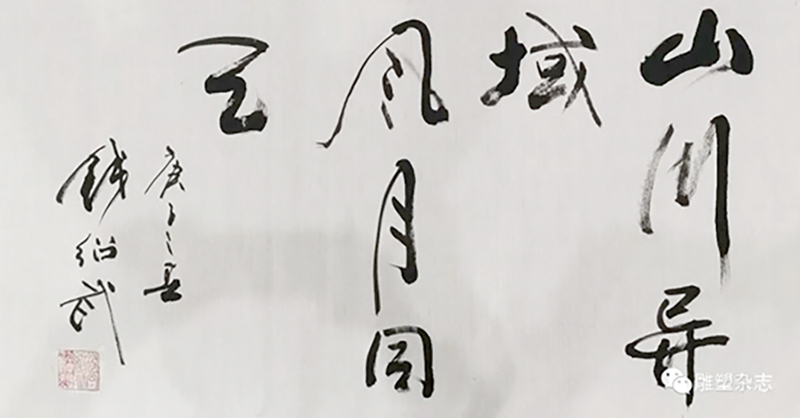 山川异
域
风月同
天
庚子之春
钱绍武
雕塑杂志